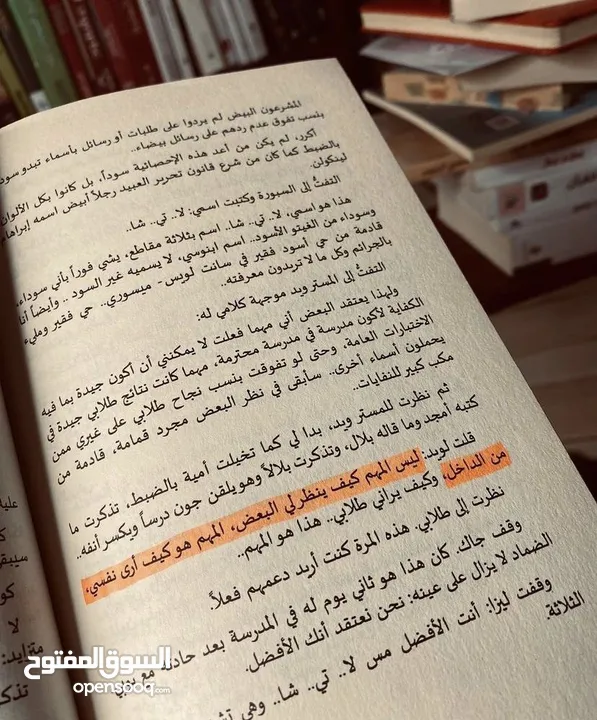 المشرعون البيض لم يردوا على طلبات أو رسائل بأسماء تبدو سود
بنسب تفوق عدم ردهم على رسائل بيضاء..
أكرر، لم يكن من أعد هذه الإحصائية سوداً، بل كانوا بكل الألوان
بالضبط كما كان من شرع قانون تحرير العبيد رجلاً أبيض اسمه إبراهام
لينكولن.
التفتُّ إلى السبورة وكتبت اسمي: لا.. تي.. شا..
هذا هو اسمي، لا.. تي.. شا.. اسم بثلاثة مقاطع، يشي فوراً بأني سوداء،
وسوداء من الغيتو الأسود.. اسم ابنوسي، لا يسميه غير السود .. وأيضاً أنا
قادمة من حي أسود فقير في سانت لويس- ميسوري.. حي فقير ومليء
بالجرائم وكل ما لا تريدون معرفته..
التفتُّ إلى المستر ويد موجهة كلامي له:
ولهذا يعتقد البعض أني مهما فعلت لا يمكنني أن أكون جيدة بما فيه
الكفاية لأكون مدرسة في مدرسة محترمة، مهما كانت نتائج طلابي جيدة في
الاختبارات العامة، وحتى لو تفوقت بنسب نجاح طلابي على غيري ممن
يحملون أسماء أخرى.. سأبقى في نظر البعض مجرد قمامة، قادمة من
مكب كبير للنفايات..
ثم نظرت للمستر ويد، بدا لي كما تخيلت أمية بالضبط، تذكرت ما
كتبه أمجد وما قاله بلال، وتذكرت بلالاً وهو يلقن جون درساً ويكسر أنفه..
قلت لويد: ليس المهم كيف ينظر لي البعض، المهم هو كيف أرى نفسي،
من الداخل، وكيف يراني طلابي.. هذا هو المهم..
نظرت إلى طلابي. هذه المرة كنت أريد دعمهم فعلاً.
وقف جاك. كان هذا هو ثاني يوم له في المدرسة بعد حادثه مع
الضماد لا يزال على عينه: نحن نعتقد أنك الأفضل.
وقفت ليزا: أنت الأفضل مس لا.. تي.. شا.. وهي
الثلاثة.
السوق المفتوح
opensooq.com